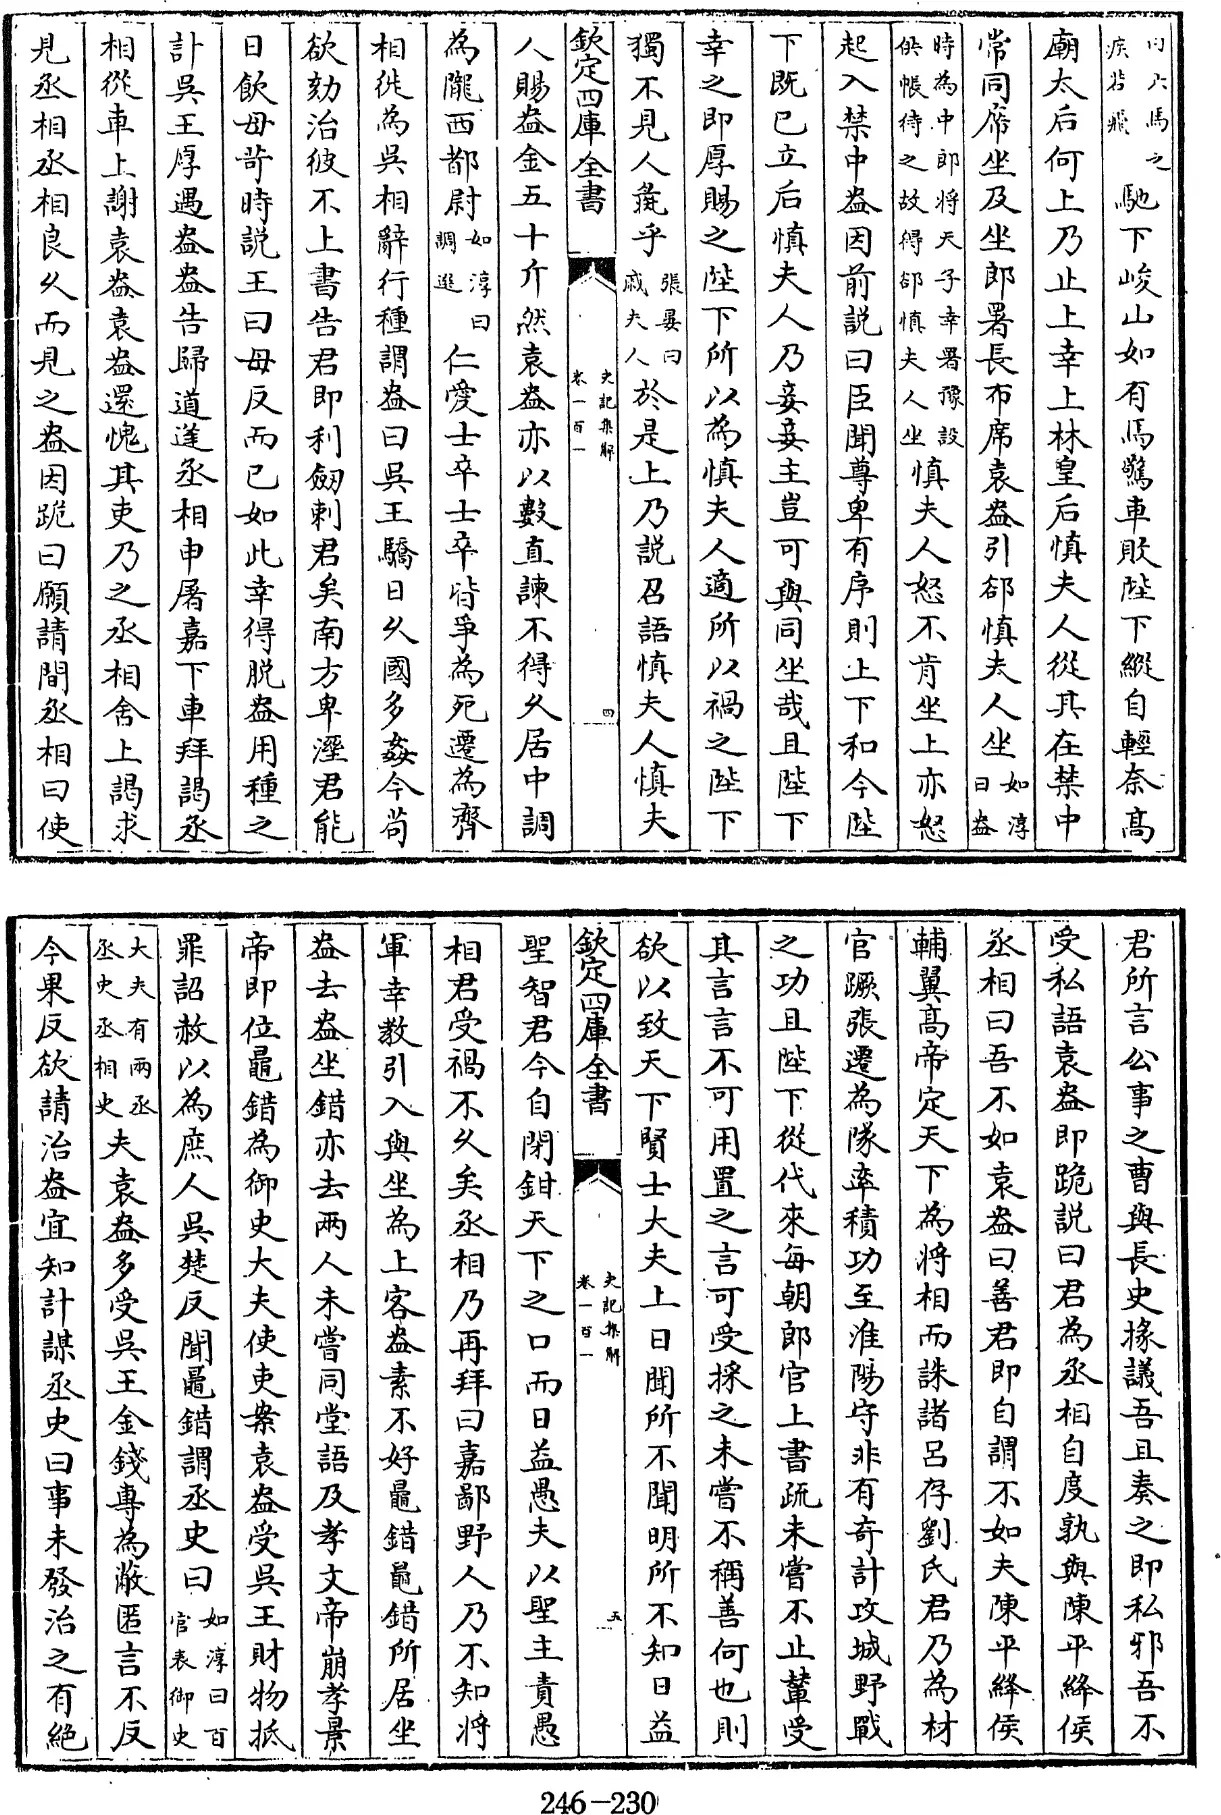 曰六馬之疾若飛馳下峻山如有馬驚車敗陛下縱自輕奈髙
廟太后何上乃止上幸上林皇后慎夫人從其在禁中
常同席坐及坐郎署長布席袁盎引郤慎夫人坐如淳曰盎
時為中郎將天子幸署豫設供帳待之故得郤慎夫人坐慎夫人怒不肯坐上亦怒
起入禁中盎因前説曰臣聞尊卑有序則上下和今陛
下既已立后慎夫人乃妾妾主豈可與同坐哉且陛下
幸之即厚賜之陛下所以為慎夫人適所以禍之陛下
獨不見人彘乎張晏曰戚夫人於是上乃説召語慎夫人慎夫
欽定四庫全書
史記集解
卷一百一
四
人賜盎金五十斤然袁盎亦以數直諫不得乆居中調
為隴西都尉如淳曰調選仁愛士卒士卒皆爭為死遷為齊
相徙為吳相辭行種謂盎曰吳王驕日乆國多姦今苟
欲劾治彼不上書告君即利劒刺君矣南方卑溼君能
日飲毋苛時説王曰毋反而已如此幸得脱盎用種之
計吳王厚遇盎盎告歸道逢丞相申屠嘉下車拜謁丞
相從車上謝袁盎袁盎還愧其吏乃之丞相舍上謁求
見丞相丞相良乆而見之盎因跪曰願請間丞相曰使
君所言公事之曹與長史掾議吾且奏之即私邪吾不
受私語袁盎即跪説曰君為丞相自度孰與陳平絳侯
丞相曰吾不如袁盎曰善君即自謂不如夫陳平絳侯
輔翼髙帝定天下為將相而誅諸呂存劉氏君乃為材
官蹶張遷為隊率積功至淮陽守非有奇計攻城野戰
之功且陛下從代來每朝郎官上書疏未嘗不止輦受
其言言不可用置之言可受採之未嘗不稱善何也則
欲以致天下賢士大夫上日聞所不聞明所不知日益
欽定四庫全書
史記集解
卷一百一
五
聖智君今自閉鉗天下之口而日益愚夫以聖主責愚
相君受禍不乆矣丞相乃再拜曰嘉鄙野人乃不知將
軍幸教引入與坐為上客盎素不好鼂錯鼂錯所居坐
盎去盎坐錯亦去兩人未嘗同堂語及孝文帝崩孝景
帝即位鼂錯為御史大夫使吏案袁盎受吳王財物抵
罪詔赦以為庶人吳楚反聞鼂錯謂丞史曰如淳曰百官表御史
大夫有兩丞丞史丞相史夫袁盎多受吳王金錢專為蔽匿言不反
今果反欲請治盎宜知計謀丞史曰事未發治之有絶
246-230